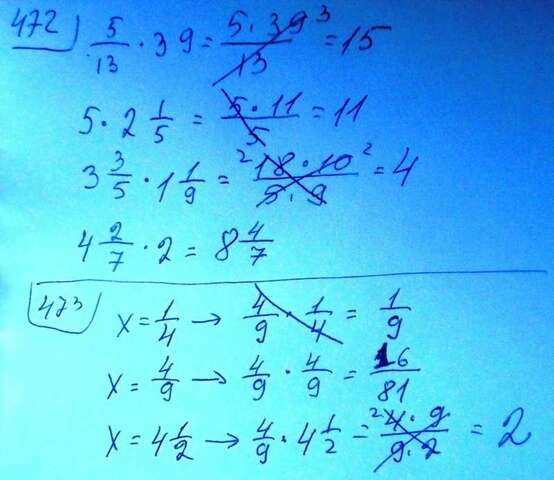 472) 5/13 · 39 = 5 · 39 3/13 = 15
5 · 2 1/5 = 5 · 11/5 = 11
3 3/5 · 1 1/9 = 2 18 · 10 2/5 · 9 = 4
4 2/7 · 2 = 8 4/7
473) x = 1/4 → 4/9 · 1/4 = 1/9
x = 4/9 → 4/9 · 4/9 = 16/81
x = 4 1/2 → 4/9 · 4 1/2 = 2 4 · 9/9 · 2 = 2